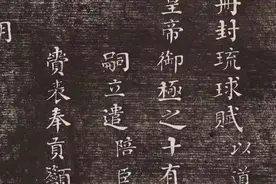 冊封琉球賦以道
皇帝御極之十有
嗣立遣陪臣
賫表奉貢籲
明